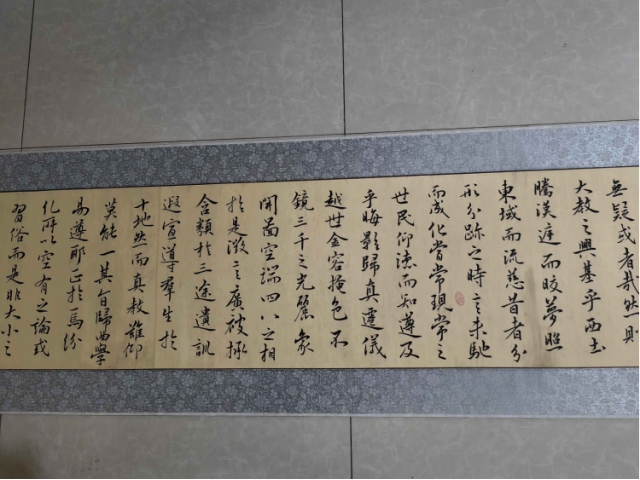 無疑或者哉然則
大教之興基乎西土
騰漢庭而皎夢照
東域而流慈昔者分
形分跡之時言未馳
而成化當常現常之
世民仰德而知遵及
乎晦影歸真遷儀
越世金容掩色不
鏡三千之光麗象
開圖空端四八之相
於是微言廣被拯
含類於三途遺訓
遐宣導羣生於
十地然而真教難仰
莫能一其旨歸曲學
易遵耶正於焉紛
化所以空有之論或
習俗而是非大小之